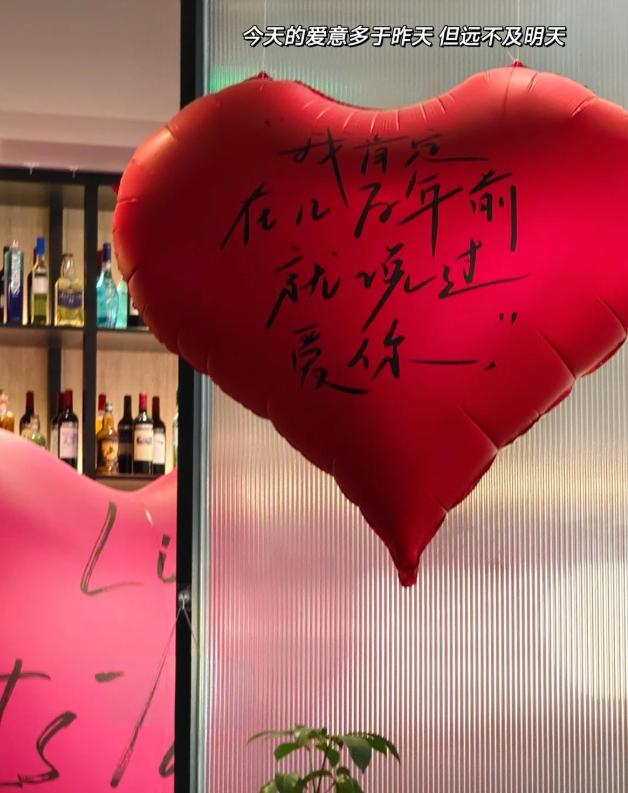 今天的爱意多于昨天 但远不及明天
“我肯定
在几百年前
就说过
爱你—.”
Li
ts